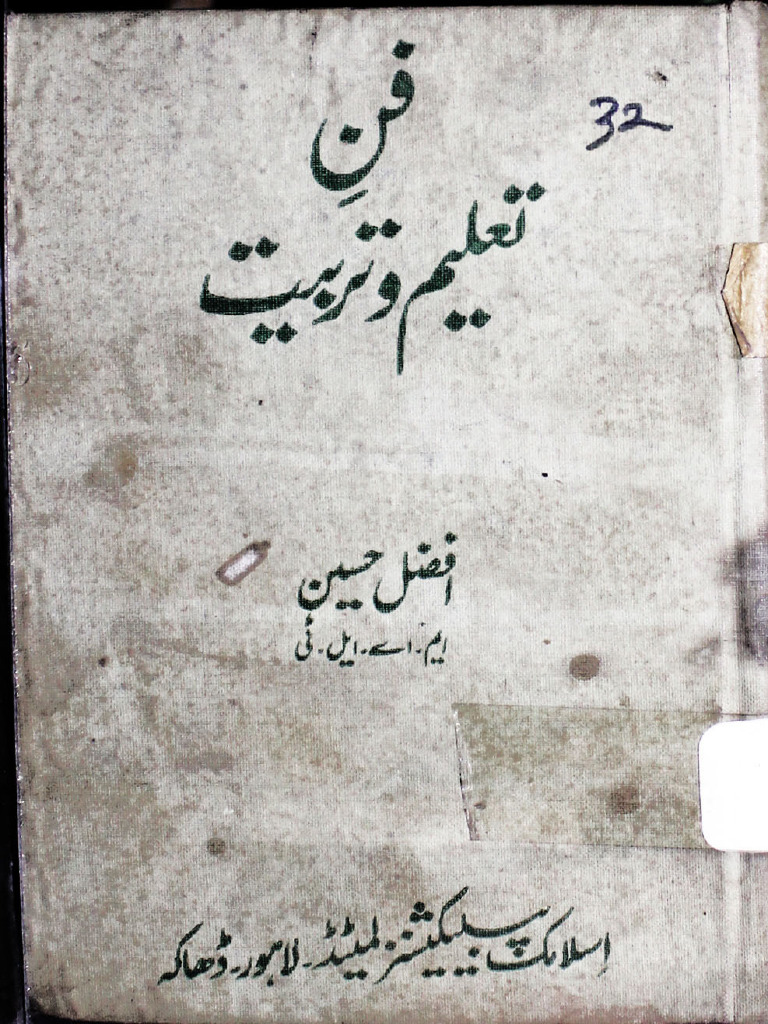 فنِ
32
تعلیم و تربیت
افضل حسین
ایم۔اے۔ایل۔ٹی
اسلامک پبلیکیشنز لمیٹڈ۔لاہور۔ڈھاکہ